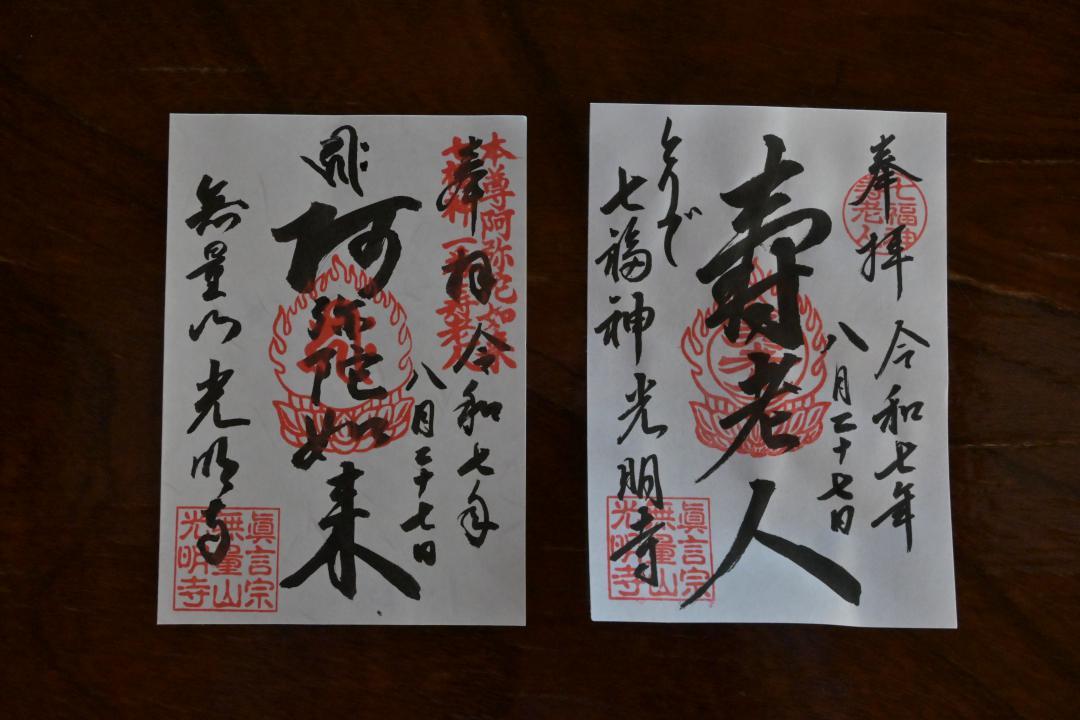 奉拝 令和七年
八月二十七日
寿老人
とりで
七福神 光明寺
七福神
寿老人
眞言宗
無量山
光明寺
本尊阿弥陀如来
奉拝 令和七年
八月二十七日
阿弥陀如来
無量山 光明寺
眞言宗
無量山
光明寺